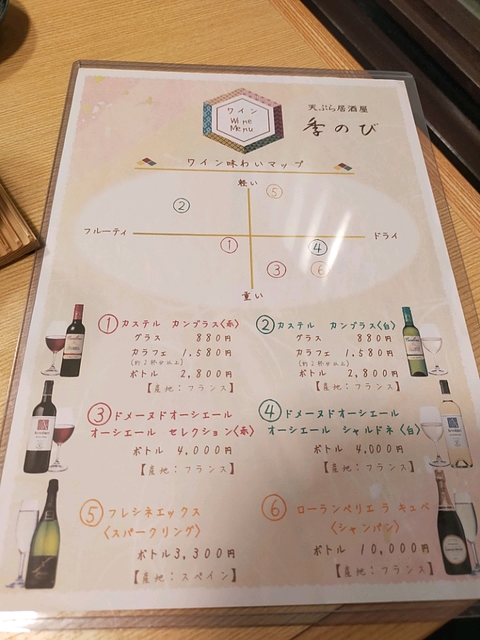 ワイン
Wine
Menu
天ぷら居酒屋
季のび
ワイン味わいマップ
軽い
⑤
②
フルーティ
ドライ
①
④
③
⑥
重い
① カステル カンプラス〈赤〉
グラス 880円
カラフェ 1,580円
(約2杯分以上)
ボトル 2,800円
【産地：フランス】
② カステル カンプラス〈白〉
グラス 880円
カラフェ 1,580円
(約2杯分以上)
ボトル 2,800円
【産地：フランス】
③ ドメーヌドオーシエール
オーシエール セレクション〈赤〉
ボトル 4,000円
【産地：フランス】
④ ドメーヌドオーシエール
オーシエール シャルドネ〈白〉
ボトル 4,000円
【産地：フランス】
⑤ フレシネエックス
〈スパークリング〉
ボトル3,300円
【産地：スペイン】
⑥ ローランペリエ ラ キュベ
〈シャンパン〉
ボトル 10,000円
【産地：フランス】